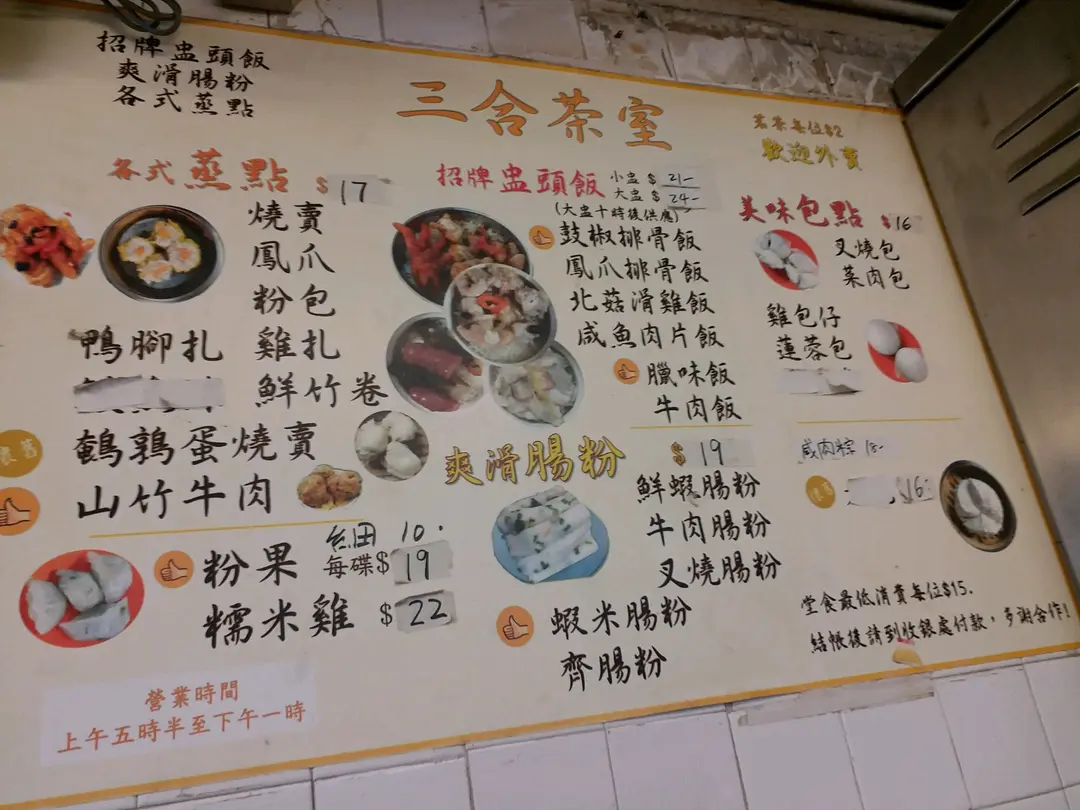 招牌盅頭飯
爽滑腸粉
各式蒸點
三合茶室
茗茶每位$2
歡迎外賣
各式蒸點 $17
燒賣
鳳爪
粉包
鴨腳扎 雞扎
鮮竹卷
鵪鶉蛋燒賣
山竹牛肉
10.
粉果 每碟$19
糯米雞 $22
營業時間
上午五時半至下午一時
招牌盅頭飯 小盅$21-
大盅$24-
(大盅十時後供應)
鼓椒排骨飯
鳳爪排骨飯
北菇滑雞飯
咸魚肉片飯
臘味飯
牛肉飯
爽滑腸粉 $19
鮮蝦腸粉
牛肉腸粉
叉燒腸粉
蝦米腸粉
齊腸粉
美味包點 $16
叉燒包
菜肉包
雞包仔
蓮蓉包
咸肉粽 18-
$16-
堂食最低消費每位$15.
結帳後請到收銀處付款，多謝合作!